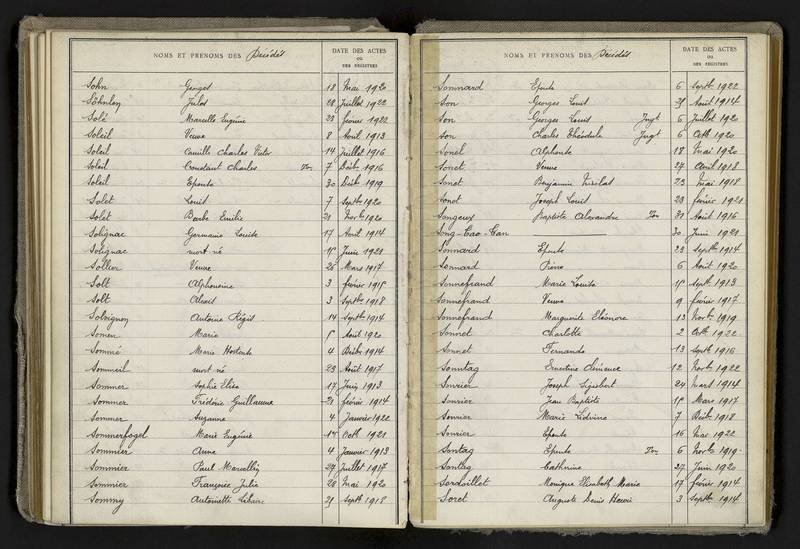 NOMS ET PRENOMS DES Décédés
DATE DES ACTES
OU
DES REGISTRES
Sohn Georges 18 Mai 1920
Söhnlen Jules 28 Juillet 1922
Solé Marcelle Eugénie 23 février 1922
Soleil Veuve 8 Avril 1913
Soleil Camille Charles Victor 14 Juillet 1916
Soleil Constant Charles Ton 7 Débre 1916
Soleil Epouse 30 Débre 1919
Solet Louis 7 Septbre 1920
Solet Berthe Emilie 21 Novbre 1920
Solignac Germaine Louise 17 Avril 1914
Solignac mort né 15 Juin 1921
Sollier Veuve 26 Mars 1917
Solt Alphonsine 3 février 1915
Solt Alexis 3 Septbre 1918
Solvignon Antoine Régis 14 Septbre 1914
Somen Marie 5 Août 1920
Sommé Marie Hortense 4 Débre 1914
Sommeil mort né 23 Août 1917
Sommer Sophie Elisa 17 Juin 1913
Sommer Frédéric Guillaume 21 février 1914
Sommer Suzanne 4 Janvier 1922
Sommerfogel Marie Eugénie 14 Octb 1921
Sommier Anne 4 Janvier 1913
Sommier Paul Marcellin 27 Juillet 1917
Sommier Françoise Julie 20 Mai 1920
Sommy Antoinette 29 Septb 1918
NOMS ET PRENOMS DES Décédés
DATE DES ACTES
OU
DES REGISTRES
Sommard Epouse 6 Septb 1922
Son Georges Louis 29 Août 1914
Son Georges Louis Jugt 6 Juillet 1920
Son Charles Théodule Jugt 6 Octb 1920
Sonel Alphonse 18 Mai 1920
Sonet Veuve 27 Avril 1918
Sonet Benjamin Nicolas 23 Mai 1918
Sonet Joseph Louis 23 février 1921
Songeux Baptiste Alexandre Ton 31 Août 1916
Song-Cao-Can 30 Juin 1921
Sonnard Epouse 23 Septbre 1914
Sonnard Pierre 6 Août 1920
Sonnefrand Marie Louise 15 Septb 1913
Sonnefrand Veuve 9 février 1917
Sonnefrand Marguerite Eléonore 13 Novbre 1919
Sonnet Charlotte 2 Octb 1922
Sonnet Fernande 13 Septb 1916
Sonntag Ernestine Clémence 12 Novbre 1922
Sonrier Joseph Sigisbert 24 Mars 1914
Sonrier Jean Baptiste 15 Mars 1917
Sonrier Marie Lidvine 7 Débre 1918
Sonrier Epouse 16 Mai 1922
Sontag Epouse Ton 6 Novbre 1919
Sontag Catherine 27 Juin 1920
Sordoillet Monique Elisabeth Marie 17 février 1914
Soret Auguste Denis Henri 3 Septbre 1914